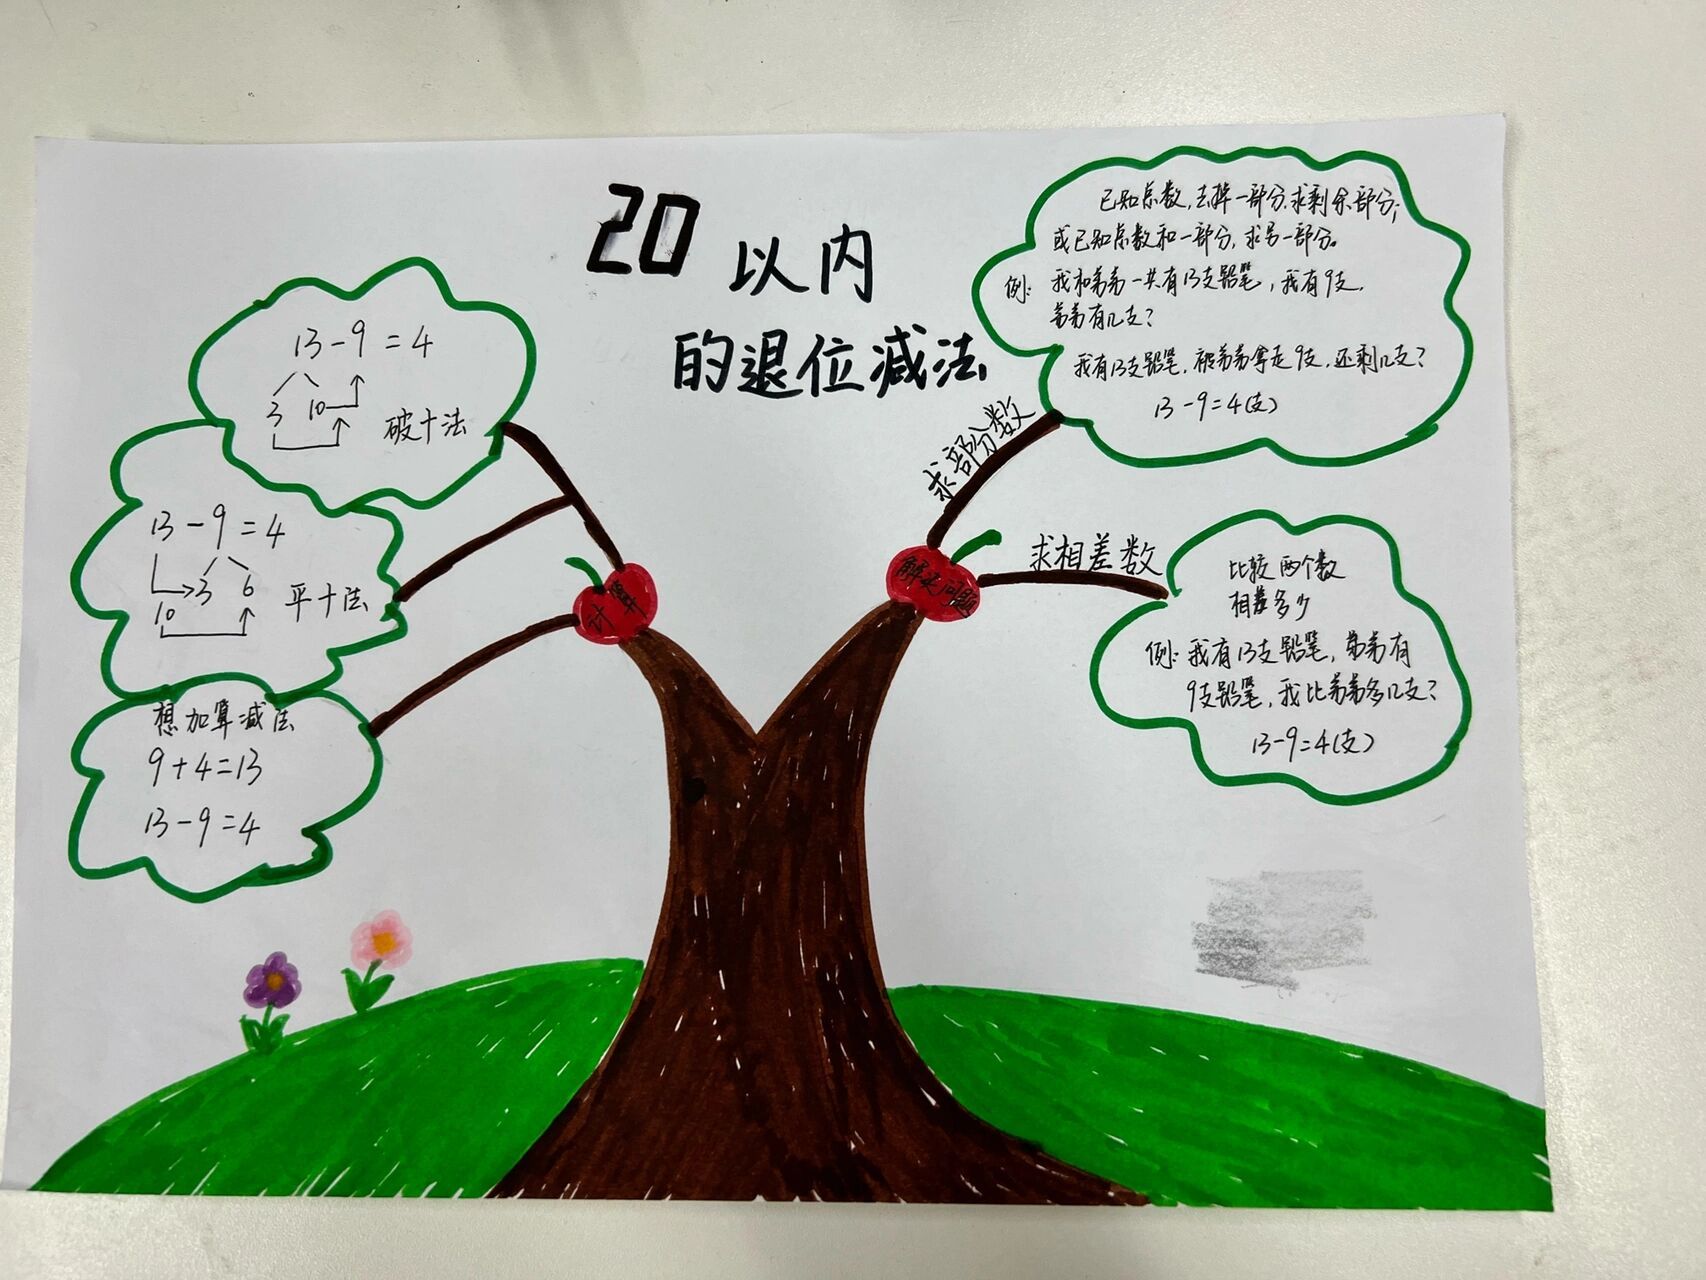 20以内
的退位减法
13-9=4
3 10
破十法
13-9=4
3 6
10
平十法
想加算减法
9+4=13
13-9=4
计算
解决问题
求部分数
已知总数,去掉一部分,求剩余部分;
或已知总数和一部分,求另一部分。
例:我和弟弟一共有13支铅笔,我有9支,
弟弟有几支?
我有13支铅笔,被弟弟拿走9支,还剩几支?
13-9=4(支)
求相差数
比较两个数
相差多少
例:我有13支铅笔,弟弟有
9支铅笔,我比弟弟多几支?
13-9=4(支)